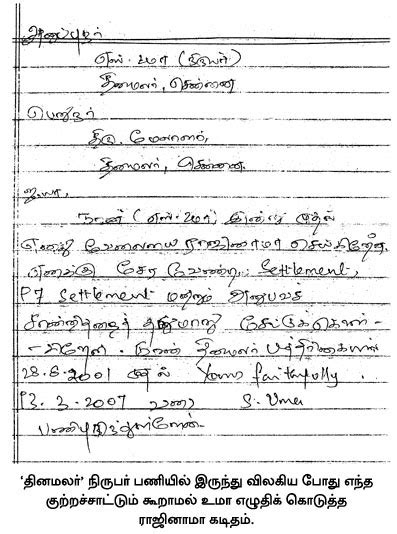 அனுப்புநர்
எஸ். உமா (நிருபர்)
தினமலர், சென்னை
பெறுநர்
திரு. மேலாளர்,
தினமலர், சென்னை.
ஐயா,
நான் (எஸ். உமா) இன்று முதல்
எனது வேலையை ராஜினாமா செய்கிறேன்.
எனக்கு சேர வேண்டிய Settlement,
PF Settlement மற்றும் அனுபவச்
சான்றிதழைத் தருமாறு கேட்டுக்கொள்-
-கிறேன். நான் தினமலர் பத்திரிகையில்
28.8.2001 முதல் Yours faithfully
13.3.2007 வரை S. Uma
பணிபுரிந்துள்ளேன்.
‘தினமலர்’ நிருபர் பணியில் இருந்து விலகிய போது எந்த
குற்றச்சாட்டும் கூறாமல் உமா எழுதிக் கொடுத்த
ராஜினாமா கடிதம்.